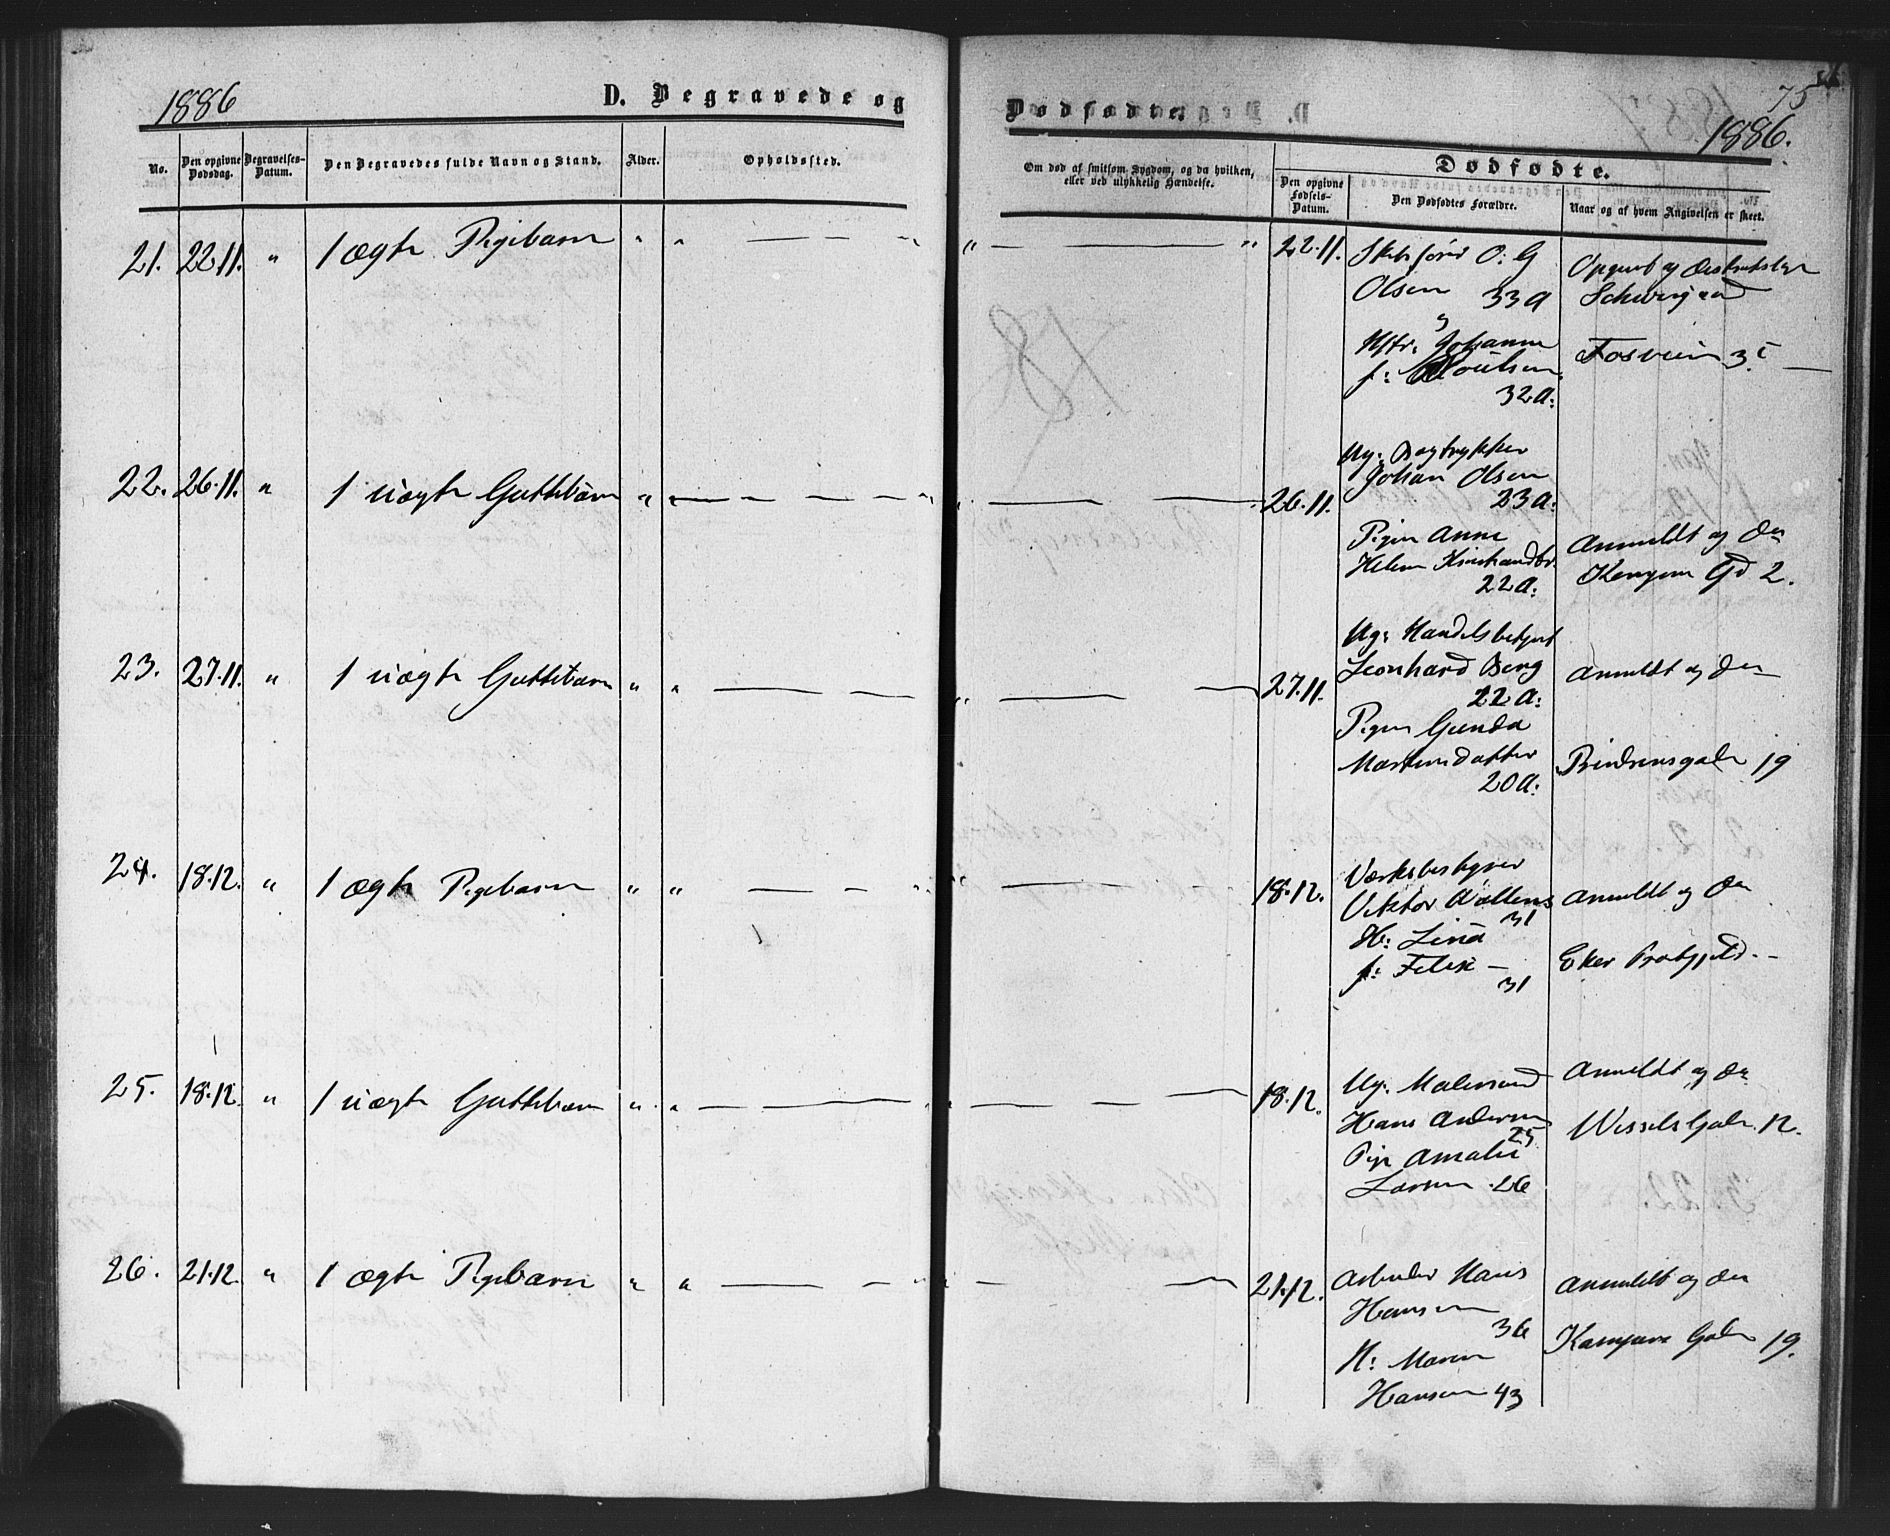 1886
D. Begravede og
Dødfødte.
75
1886.
No.
Den opgivne Dødsdag.
Begravelses-Datum.
Den Begravedes fulde Navn og Stand.
Alder.
Opholdssted.
Om død af smitsom Sygdom, og da hvilken,
eller ved ulykkelig Hændelse.
Dødfødte.
Den opgivne Fødsels-Datum.
Den Dødfødtes Forældre.
Naar og af hvem Angivelsen er skeet.
21. 22.11. " 1 ægte Pigebarn " " — — — " " — — — " 22.11.
O: G
Olsen 33 a
og
Hstr. Johanne
f:
32 a:
Opgivet af
3
22. 26.11. " 1 uægte Guttebarn " " — — — 26.11.
Ug: Bogtrykker
Johan Olsen
23 a:
Pigen Anne
Helene
22 a:
Anmeldt og Dn
Gd 2.
23. 27.11. " 1 uægte Guttebarn " " — — — 27.11.
Ug: Handelsbetjent
Leonhard Berg
22 a:
Pigen Gunda
Martinsdatter
20 a:
Anmeldt og Dn
19
24. 18.12. " 1 ægte Pigebarn " " — — — 18.12.
Værksbestyrer
Viktor
31
H: Lina
f: Felix —
31
Anmeldt og Dn
Eker
25. 18.12. " 1 uægte Guttebarn " " — — — 18.12.
Ug. Malersvend
Hans Andersen
25
Pige Amalie
Larsen 26
Anmeldt og Dn
Wessels Gade 12.
26. 21.12. " 1 ægte Pigebarn " " — — — 21.12.
Arbeider Hans
Hansen
36
H: Maren
Hansen 43
Anmeldt og Dn
Gade 19.